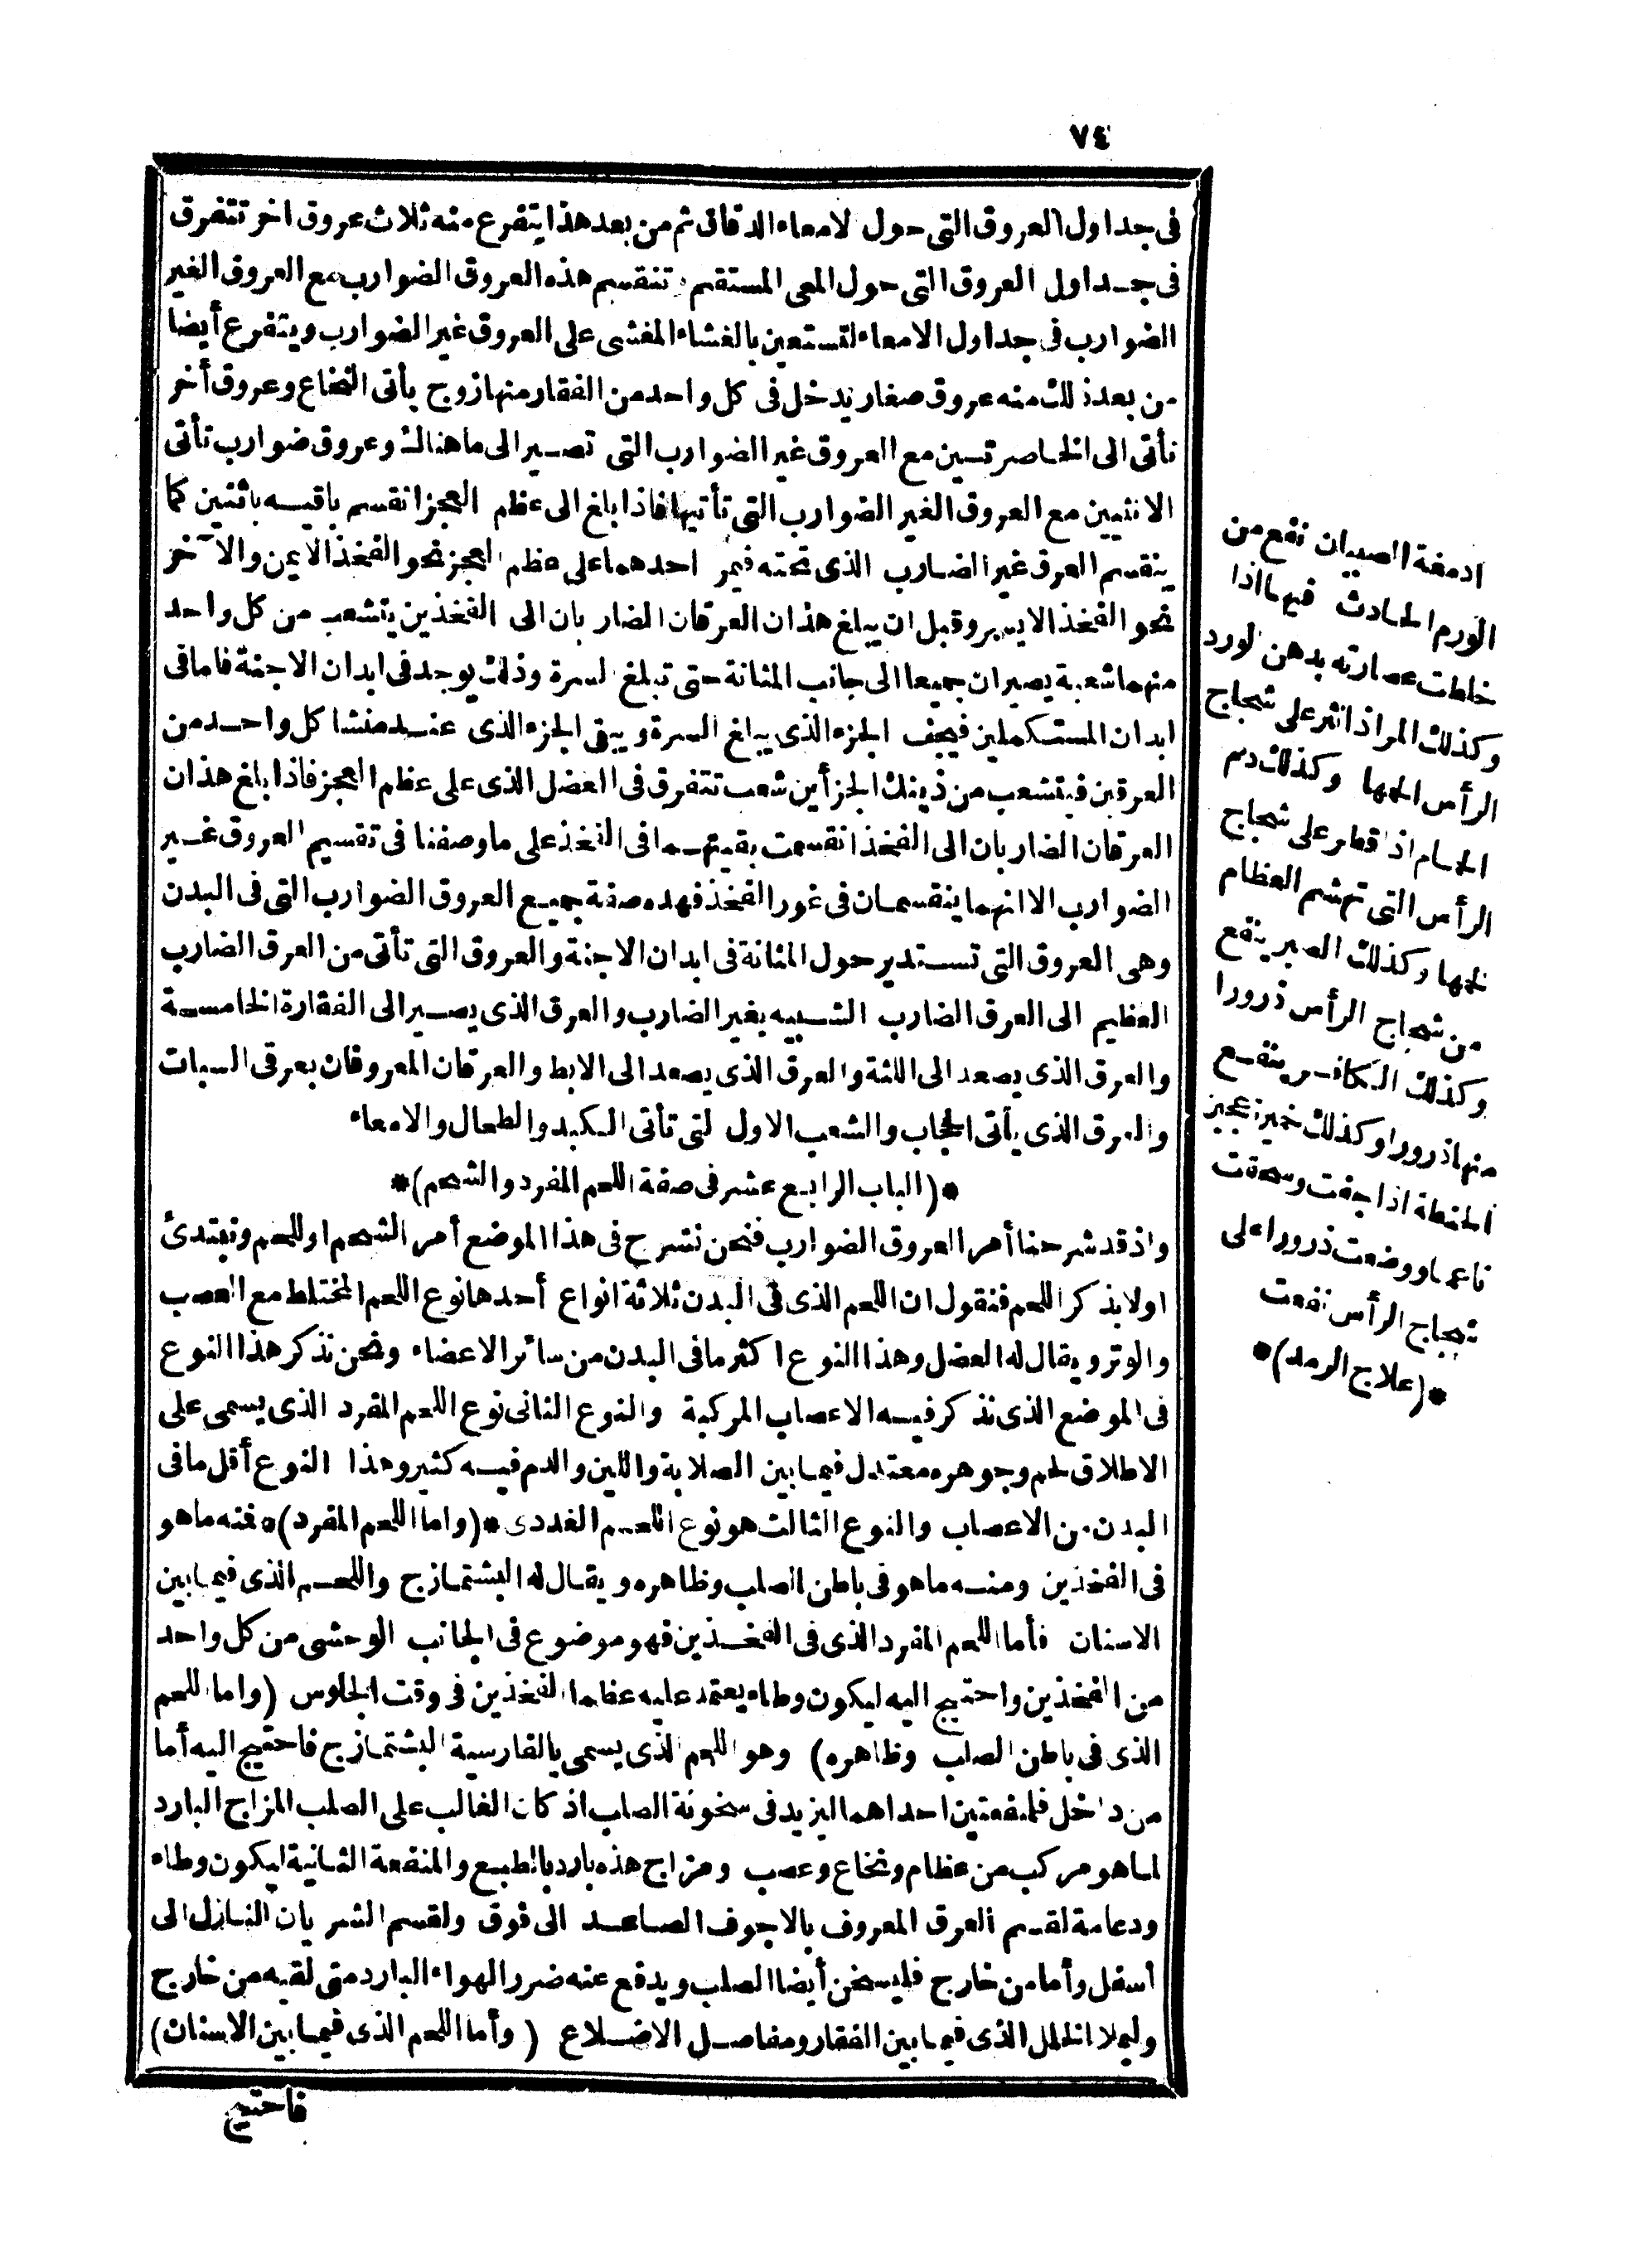 ٧٤
فى جداول العروق التى حول الامعاء الدقاق ثم من بعد هذا يتفرع منه ثلاث عروق اخر تتفرق
فى جداول العروق التى حول المعى المستقيم وتنقسم هذه العروق الضوارب مع العروق الغير
الضوارب فى جداول الامعاء لتستعين بالغشاء المغشى على العروق غير الضوارب ويتفرع أيضا
من بعد ذلك منه عروق صغار يدخل فى كل واحد من الفقار منها زوج يأتى النخاع وعروق أخر
تأتى الى الخاصرتين مع العروق غير الضوارب التى تصير الى ما هنالك وعروق ضوارب تأتى
الانثيين مع العروق الغير الضوارب التى تأتيها فاذا بلغ الى عظم العجز انقسم باقيه باثنين كما
ينقسم العرق غير الضارب الذى تحته فيمر احدهما على عظم العجز نحو الفخذ الايمن والآخر
نحو الفخذ الايسر وقبل ان يبلغ هذان العرقان الضاربان الى الفخذين يتشعب من كل واحد
منهما شعبة يصيران جميعا الى جانب المثانة حتى تبلغ السرة وذلك يوجد فى ابدان الاجنة فاما فى
ابدان المستكملين فيجف الجزء الذى يبلغ السرة ويبقى الجزء الذى عند منشا كل واحد من
العرقين فيتشعب من ذينك الجزأين شعب تتفرق فى العضل الذى على عظم العجز فاذا بلغ هذان
العرقان الضاربان الى الفخذ انقسمت بقيتهما فى الفخذ على ما وصفنا فى تقسيم العروق غير
الضوارب الا انهما ينقسمان فى غور الفخذ فهذه صفة جميع العروق الضوارب التى فى البدن
وهى العروق التى تستدير حول المثانة فى ابدان الاجنة والعروق التى تأتى من العرق الضارب
العظيم الى العرق الضارب الشبيه بغير الضارب والعرق الذى يصير الى الفقارة الخامسة
والعرق الذى يصعد الى اللثة والعرق الذى يصعد الى الابط والعرقان المعروفان بعرقى السبات
والعرق الذى يأتى الحجاب والشعب الاول التى تأتى الكبد والطحال والامعاء
*(الباب الرابع عشر فى صفة اللحم المفرد والشحم)*
واذ قد شرحنا أمر العروق الضوارب فنحن نشرح فى هذا الموضع أمر الشحم او للحم ونبتدئ
اولا بذكر اللحم فنقول ان اللحم الذى فى البدن ثلاثة انواع أحدها نوع اللحم المختلط مع العصب
والوتر ويقال له العضل وهذا النوع اكثر ما فى البدن من سائر الاعضاء ونحن نذكر هذا النوع
فى الموضع الذى نذكر فيه الاعصاب المركبة والنوع الثانى نوع اللحم المفرد الذى يسمى على
الاطلاق لحم وجوهره معتدل فيما بين الصلابة واللين والدم فيه كثير وهذا النوع أقل ما فى
البدن من الاعصاب والنوع الثالث هو نوع اللحم الغددى *(واما اللحم المفرد)* فمنه ما هو
فى الفخذين ومنه ما هو فى باطن الصلب وظاهره ويقال له البشتمازج واللحم الذى فيما بين
الاسنان فأما اللحم المفرد الذى فى الفخذين فهو موضوع فى الجانب الوحشى من كل واحد
من الفخذين واحتيج اليه ليكون وطاء يعتمد عليه عظما الفخذين فى وقت الجلوس (واما اللحم
الذى فى باطن الصلب وظاهره) وهو اللحم الذى يسمى بالفارسية البشتمازج فاحتيج اليه أما
من داخل فلمنفعتين احداهما ليزيد فى سخونة الصلب اذ كان الغالب على الصلب المزاج البارد
لما هو مركب من عظام ونخاع وعصب ومزاج هذه بارد بالطبع والمنفعة الثانية ليكون وطاء
ودعامة لقسم العرق المعروف بالاجوف الصاعد الى فوق ولقسم الشريان النازل الى
أسفل وأما من خارج فليسخن أيضا الصلب ويدفع عنه ضرر الهواء البارد متى لقيه من خارج
وليملا الخلل الذى فيما بين الفقار ومفاصل الاضلاع (وأما اللحم الذى فيما بين الاسنان)
فاحتيج
ادمغة الصبيان نفع من
الورم الحادث فيها اذا
خلطت عصارته بدهن الورد
وكذلك المر اذا نثر على شجاج
الرأس الحمها وكذلك دم
الحمام اذا قطر على شجاج
الرأس التى تهشم العظام
لحمها وكذلك الصبر ينفع
من شجاج الرأس ذرورا
وكذلك ينفع
منها ذرورا وكذلك خمير عجين
الحنطة اذا جفت وسحقت
ناعما ووضعت ذرورا على
شجاج الرأس نفعت
*(علاج الرمد)*